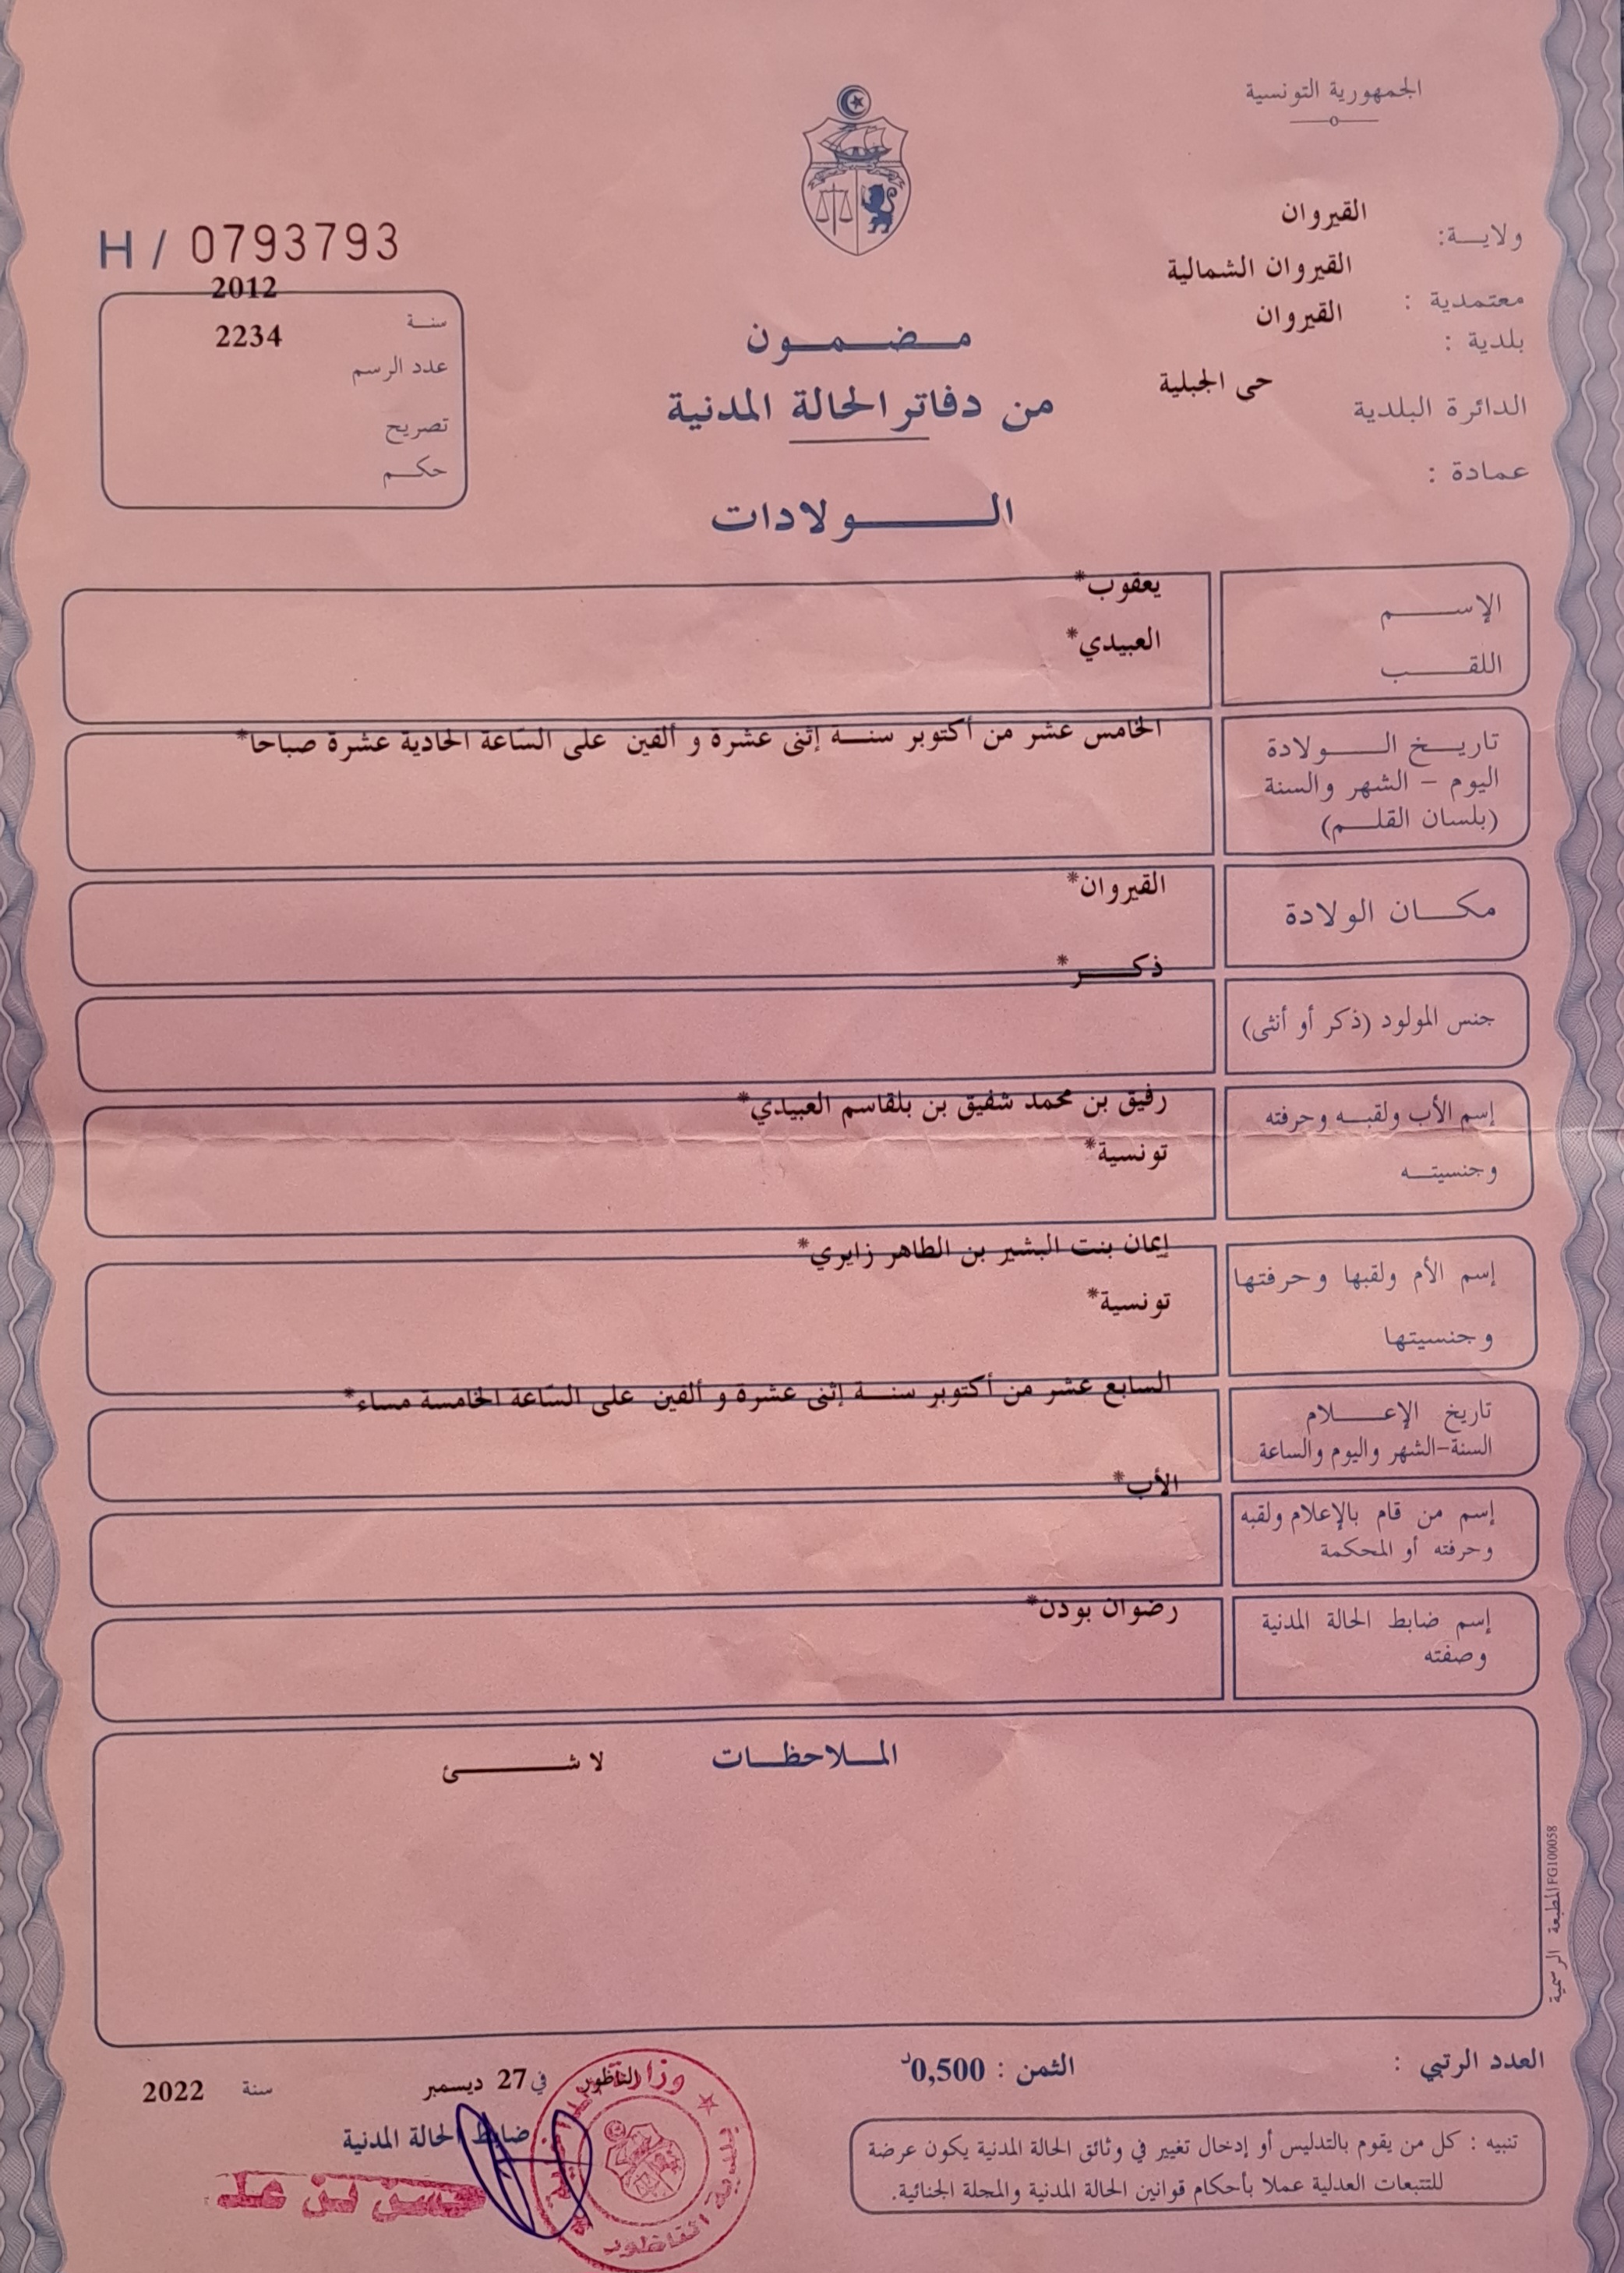 الجمهورية التونسية
ولاية: القيروان
معتمدية : القيروان الشمالية
بلدية : القيروان
الدائرة البلدية حى الجبلية
عمادة :
H / 0793793
سنة 2012
عدد الرسم 2234
تصريح
حكم
مضمون
من دفاتر الحالة المدنية
الولادات
الإسم يعقوب*
اللقب العبيدي*
تاريخ الولادة الخامس عشر من أكتوبر سنة إثنى عشرة و ألفين على الساعة الحادية عشرة صباحا*
اليوم - الشهر والسنة
(بلسان القلم)
مكان الولادة القيروان*
جنس المولود (ذكر أو أنثى) ذكر*
إسم الأب ولقبه وحرفته رفيق بن محمد شفيق بن بلقاسم العبيدي*
وجنسيته تونسية*
إسم الأم ولقبها وحرفتها إيمان بنت البشير بن الطاهر زايري*
وجنسيتها تونسية*
تاريخ الإعلام السابع عشر من أكتوبر سنة إثنى عشرة و ألفين على الساعة الخامسة مساء*
السنة-الشهر واليوم والساعة
إسم من قام بالإعلام ولقبه الأب*
وحرفته أو المحكمة
إسم ضابط الحالة المدنية رضوان بودن*
وصفته
الملاحظات لا شئ
المطبعة الرسمية FG100058
العدد الرتبي :
الثمن : 0,500د
الناظور في 27 ديسمبر سنة 2022
ضابط الحالة المدنية
حسن بن علي
تنبيه : كل من يقوم بالتدليس أو إدخال تغيير في وثائق الحالة المدنية يكون عرضة
للتتبعات العدلية عملا بأحكام قوانين الحالة المدنية والمجلة الجنائية.